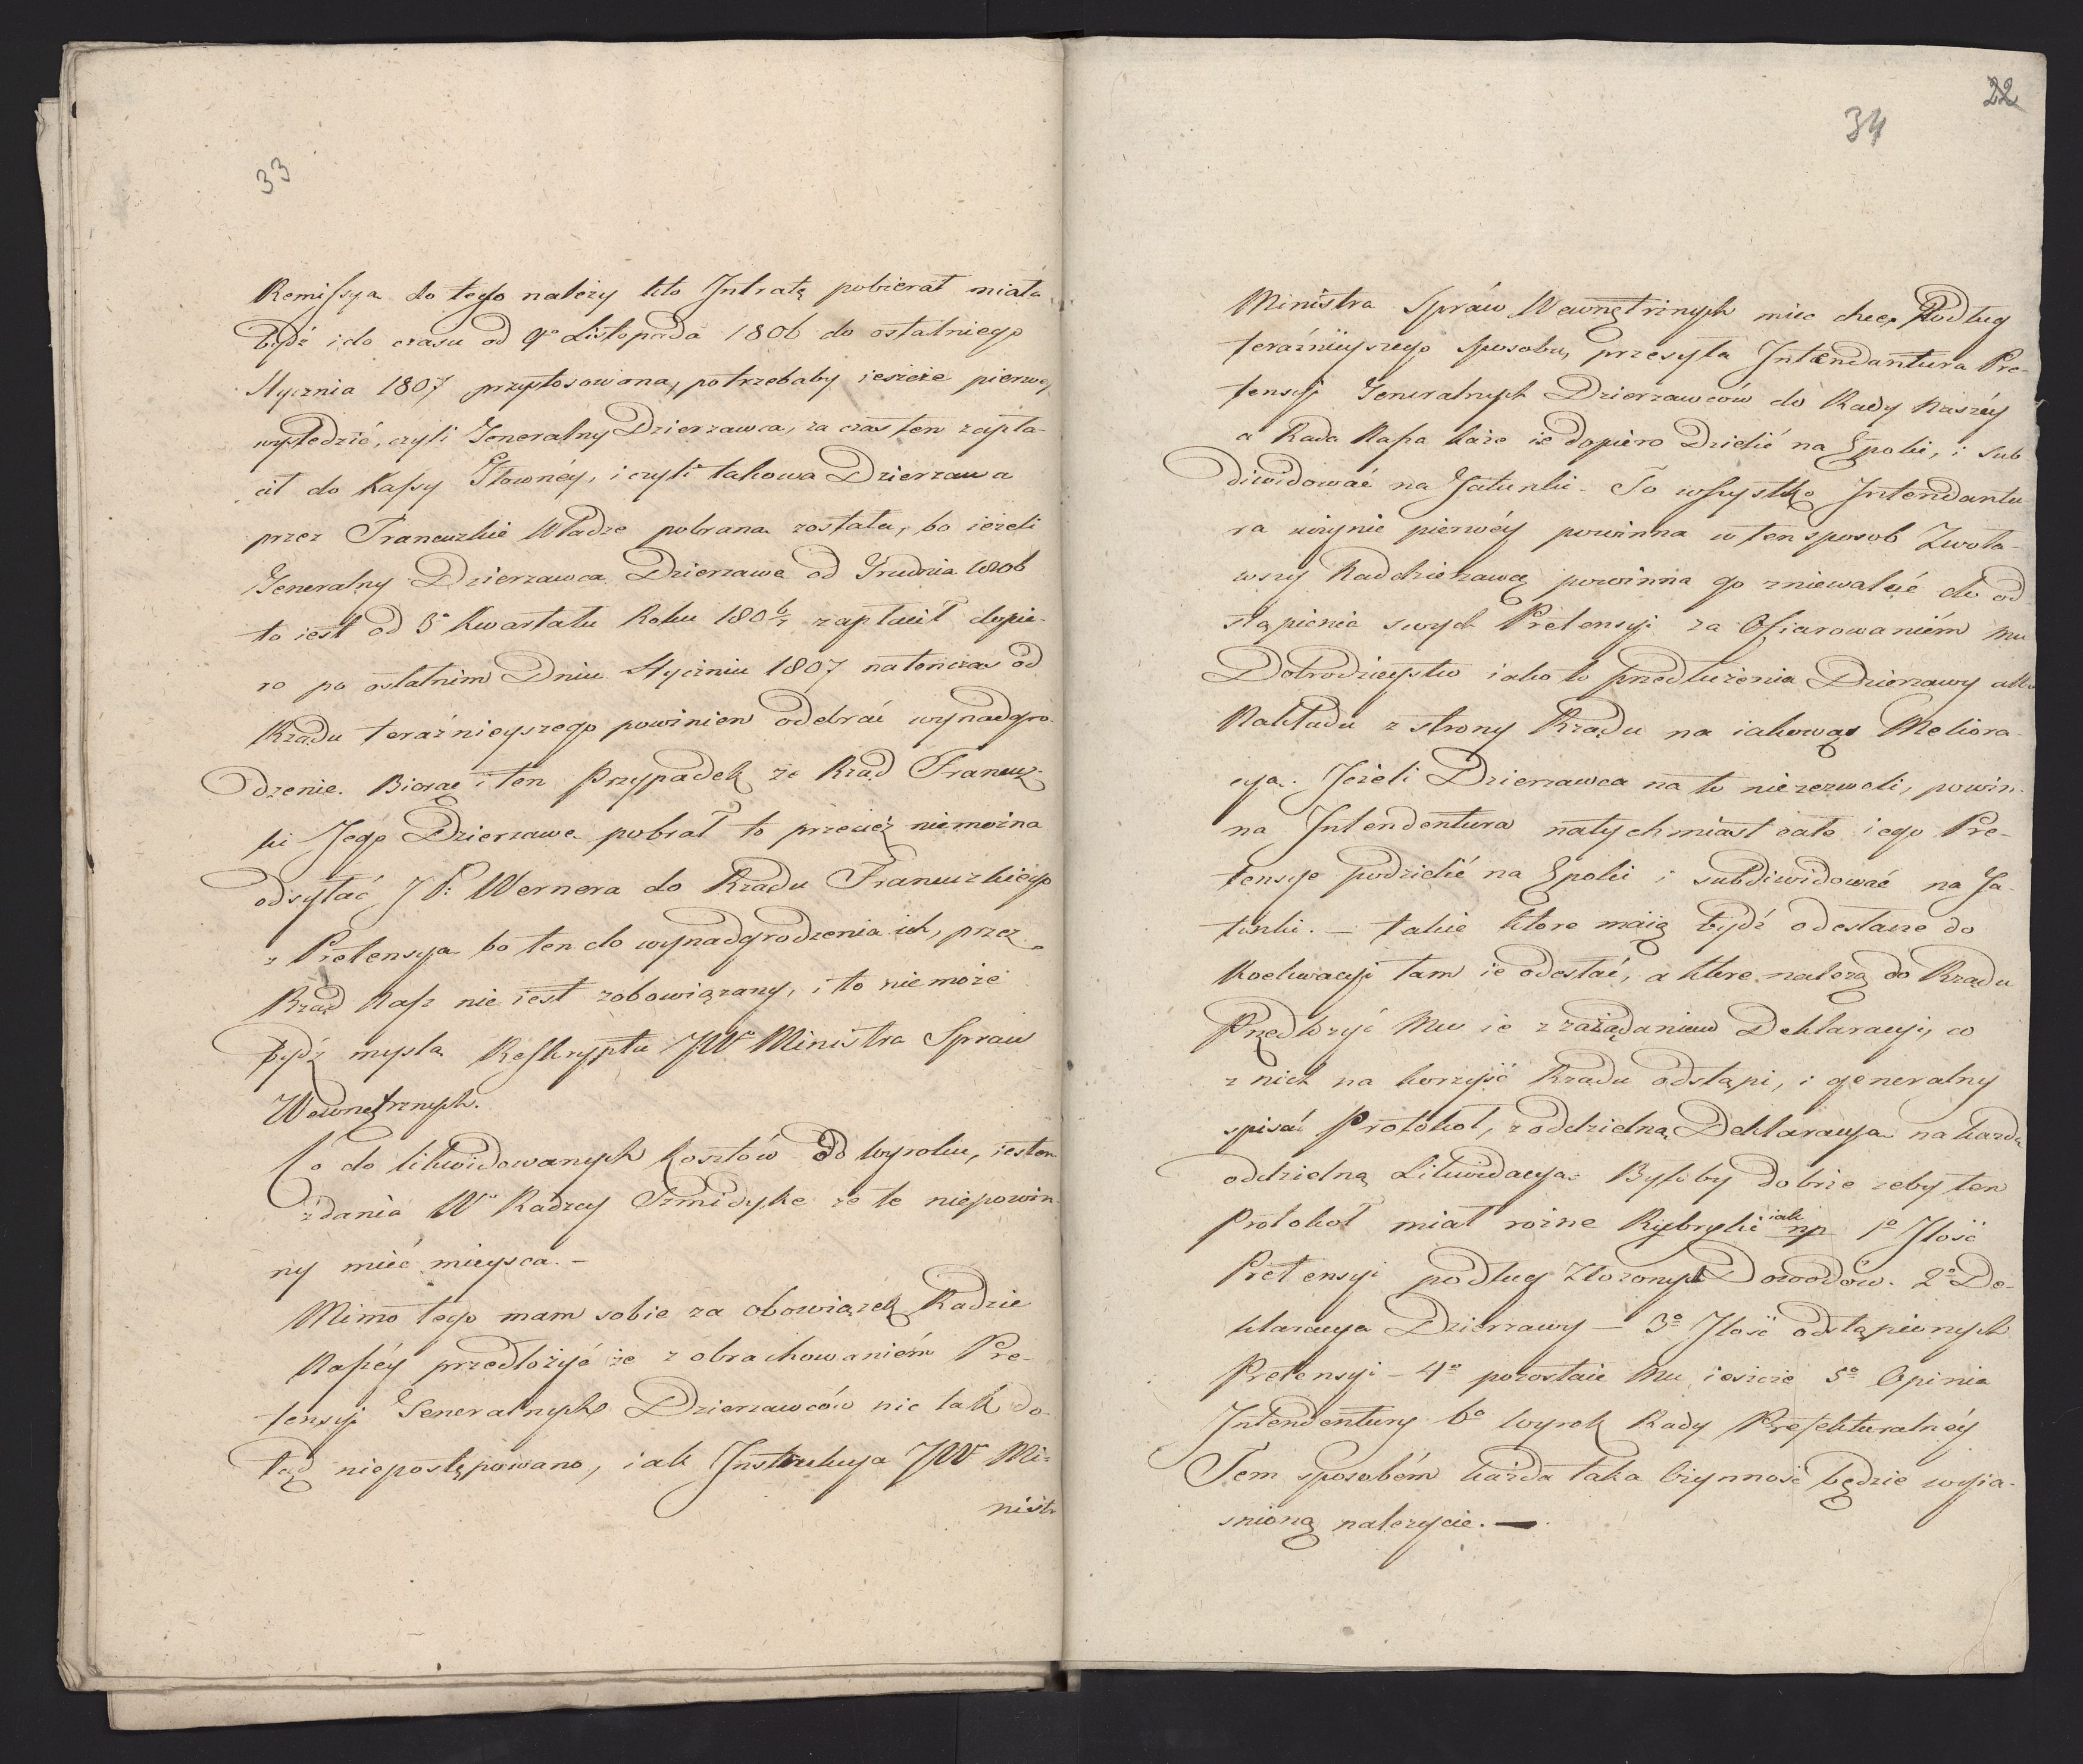 33
Remissya do tego należy kto Intratę pobierał miała
bydź i do czasu od 9º Listopada 1806 do ostatniego
Stycznia 1807 przystosowana, potrzebaby ieszcze pierwey
wyśledzić, czyli Generalny Dzierzawca, za czas ten zapła-
cił do Kassy Głownéy, i czyli takowa Dzierzawa
przez Francuzkie Władze pobrana została, bo ieżeli
Generalny Dzierzawca Dzierzawę od Grudnia 1806
to iest od 3º Kwartału Roku 180 6/7 zapłacił dopie-
ro po ostatnim Dniu Styczniu 1807 natenczas od
Rządu teraźnieyszego powinien odebrać wynadgro-
dzenie. Biorąc i ten Przypadek że Rząd Francuz-
ki Jego Dzierzawę pobrał to przecież niemożna
odsyłać JP. Wernera do Rządu Francuzkiego
z Pretensyą bo ten do wynadgrodzenia ich, przez
Rząd Nasz nie iest zobowiązany, i to nie może
bydź myslą Reskryptu JWº Ministra Spraw
Wewnętrznych.
Co do likwidowanych Kosztów Od Wyroku, iestem
zdania Wº Radzcy Szmidyke że te niepowin
ny mieć mieysca. –
Mimo tego mam sobie za obowiązek Radzie
Naszéy przedłożyć że z obrachowaniém Pre-
tensyi Generalnych Dzierzawców nie tak do-
tąd niepostępowano, iak Instrukcya JW Mi-
nistr
22
34
Ministra Spraw Wewnętrznych miec chce, Podług
teraźnieyszego sposobu, przesyła Intendantura Pre-
tensyi Generalnych Dzierzawców do Rady Naszéy
a Rada Nasza każe ie dopiero Dzielić na Epoki, i Sub
diwidować na Gatunki – To wszystko Intendantu-
ra uczynic pierwéy powinna w ten sposob Zwoła-
wszy Naddzierzawcę powinna go zniewalać do od
stąpienia swych Pretensyi za Ofiarowaniém mu
Dobrodzieystw iako to przedłużenia Dzierzawy albo
Nakładu z strony Rządu na iakowąs Meliora-
cyą. Jeżeli Dzierzawca na to niezezwoli, powin-
na Intendentura natychmiast cało iego Pre-
tensye podzielić na Epoki i subdiwidować na Ga-
tunki. – takie ktore maią bydź odesłane do
Koekwacyi tam ie odesłać, a ktore należą do Rządu
Przedłożyć Mu ie z zażądaniem Deklaracyi, co
z nich na korzyść Rządu odstąpi, i generalny
spisać Protokoł, z oddzielną Deklaracyą na każdą
oddzielną Likwidacyą. Byłoby dobrze zeby ten
Protokoł miał rozne Rubryki iak np 1º Ilość
Pretensyi podług Złozonych Dowodów. 2º De-
klaracya Dzierzawy – 3º Ilość odstąpionych
Pretensyi – 4º pozostaie Mu ieszcze 5º Opinia
Intendentury 6º Wyrok Rady Prefekturalnéy
Tem sposobém każda taka Czynność będzie wyia-
snioną nalezycie. —